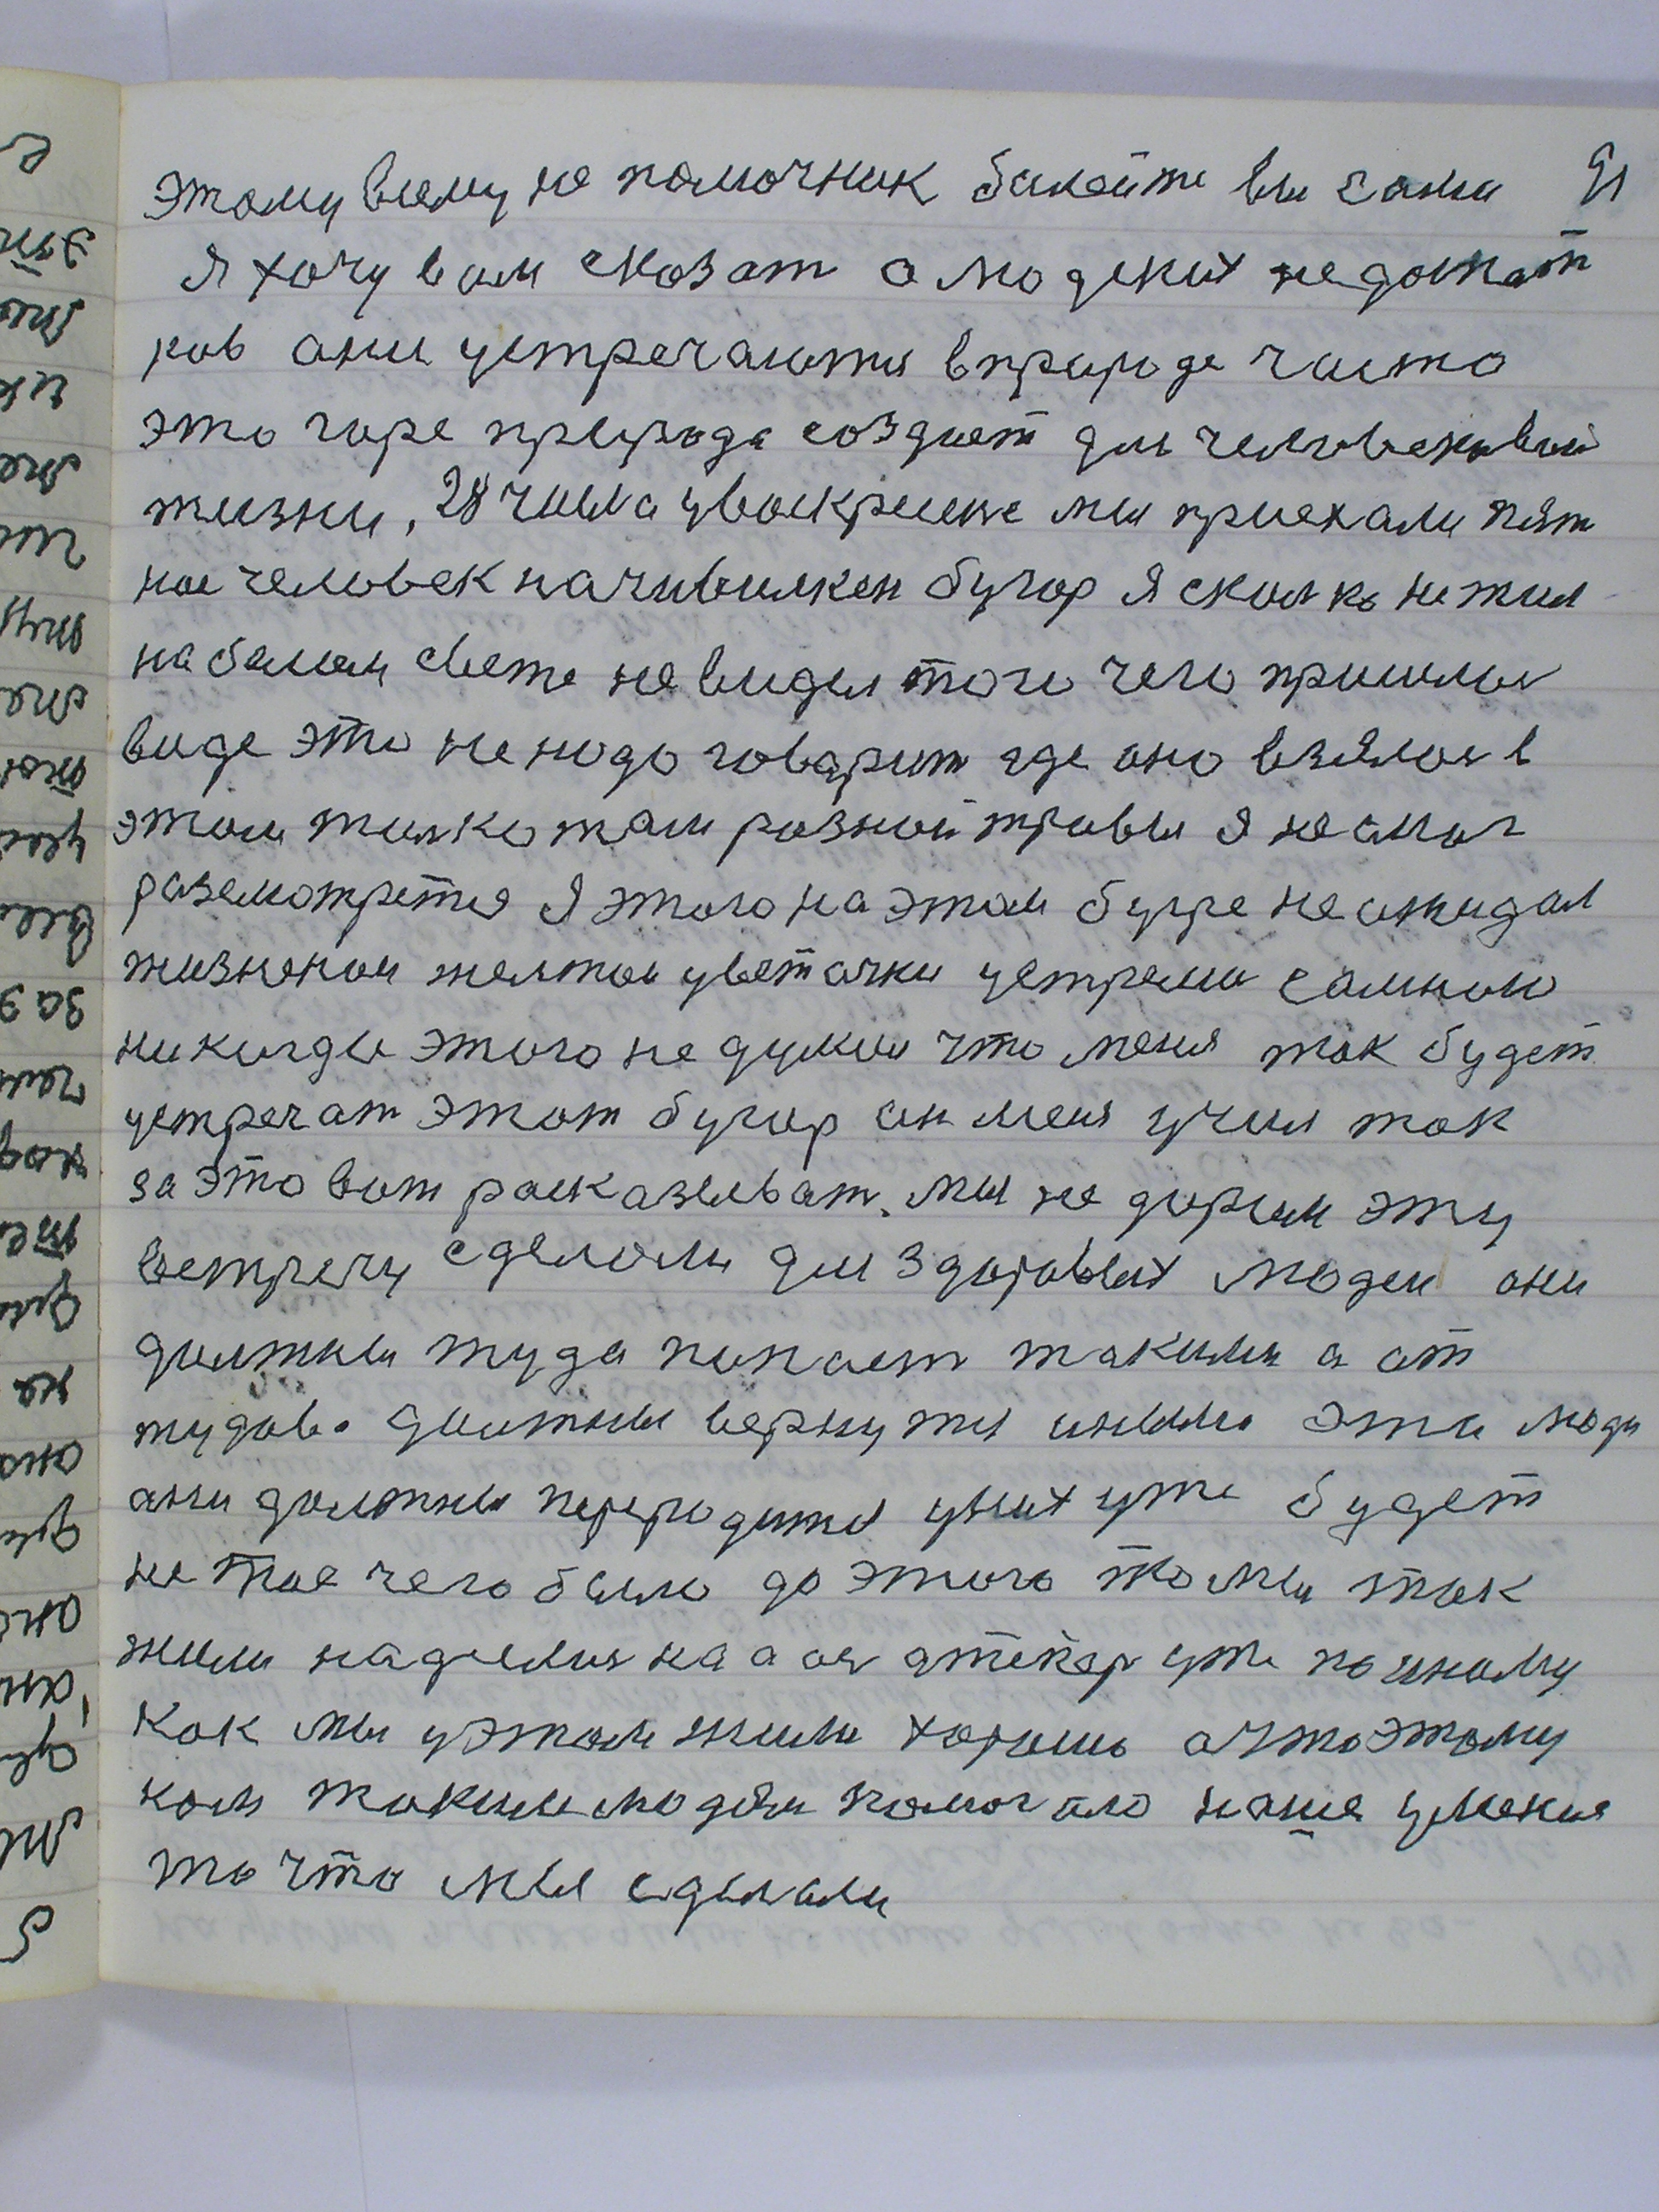 91
этому всему не помочник бикойте вы сами
я хочу вам сказат о людских недостат
ков они устречаются в природе часто
это горе природа создает для человековой
жизни, 28 числа у воскресене мы приехали пят
нае человек на чивилкен бугор я сколко не жил
на белом свете не видел того чего пришлос
виде это не надо говарит где оно взялос в
этом толко там разной травы я не смог
разсмотретя я этого на этом бугре не ожидал
жизненои желтои цветочки устреми самною
никогды этого не думои что меня так будет
устречат этот бугор он меня учил так
за это вот расказыват. мы не даром эту
встречу сделали для здоровых людеи они
должны туда попаст такими а от
тудова должны вернутя иными эти люди
они должны переродитя у них уже будет
не тое чего было до этого то мы так
жили надеялис на а ос атепер уже по иному
как мы у этом жили хорошо а что этому
ком такими людям помогало наше умения
то что мы сделали